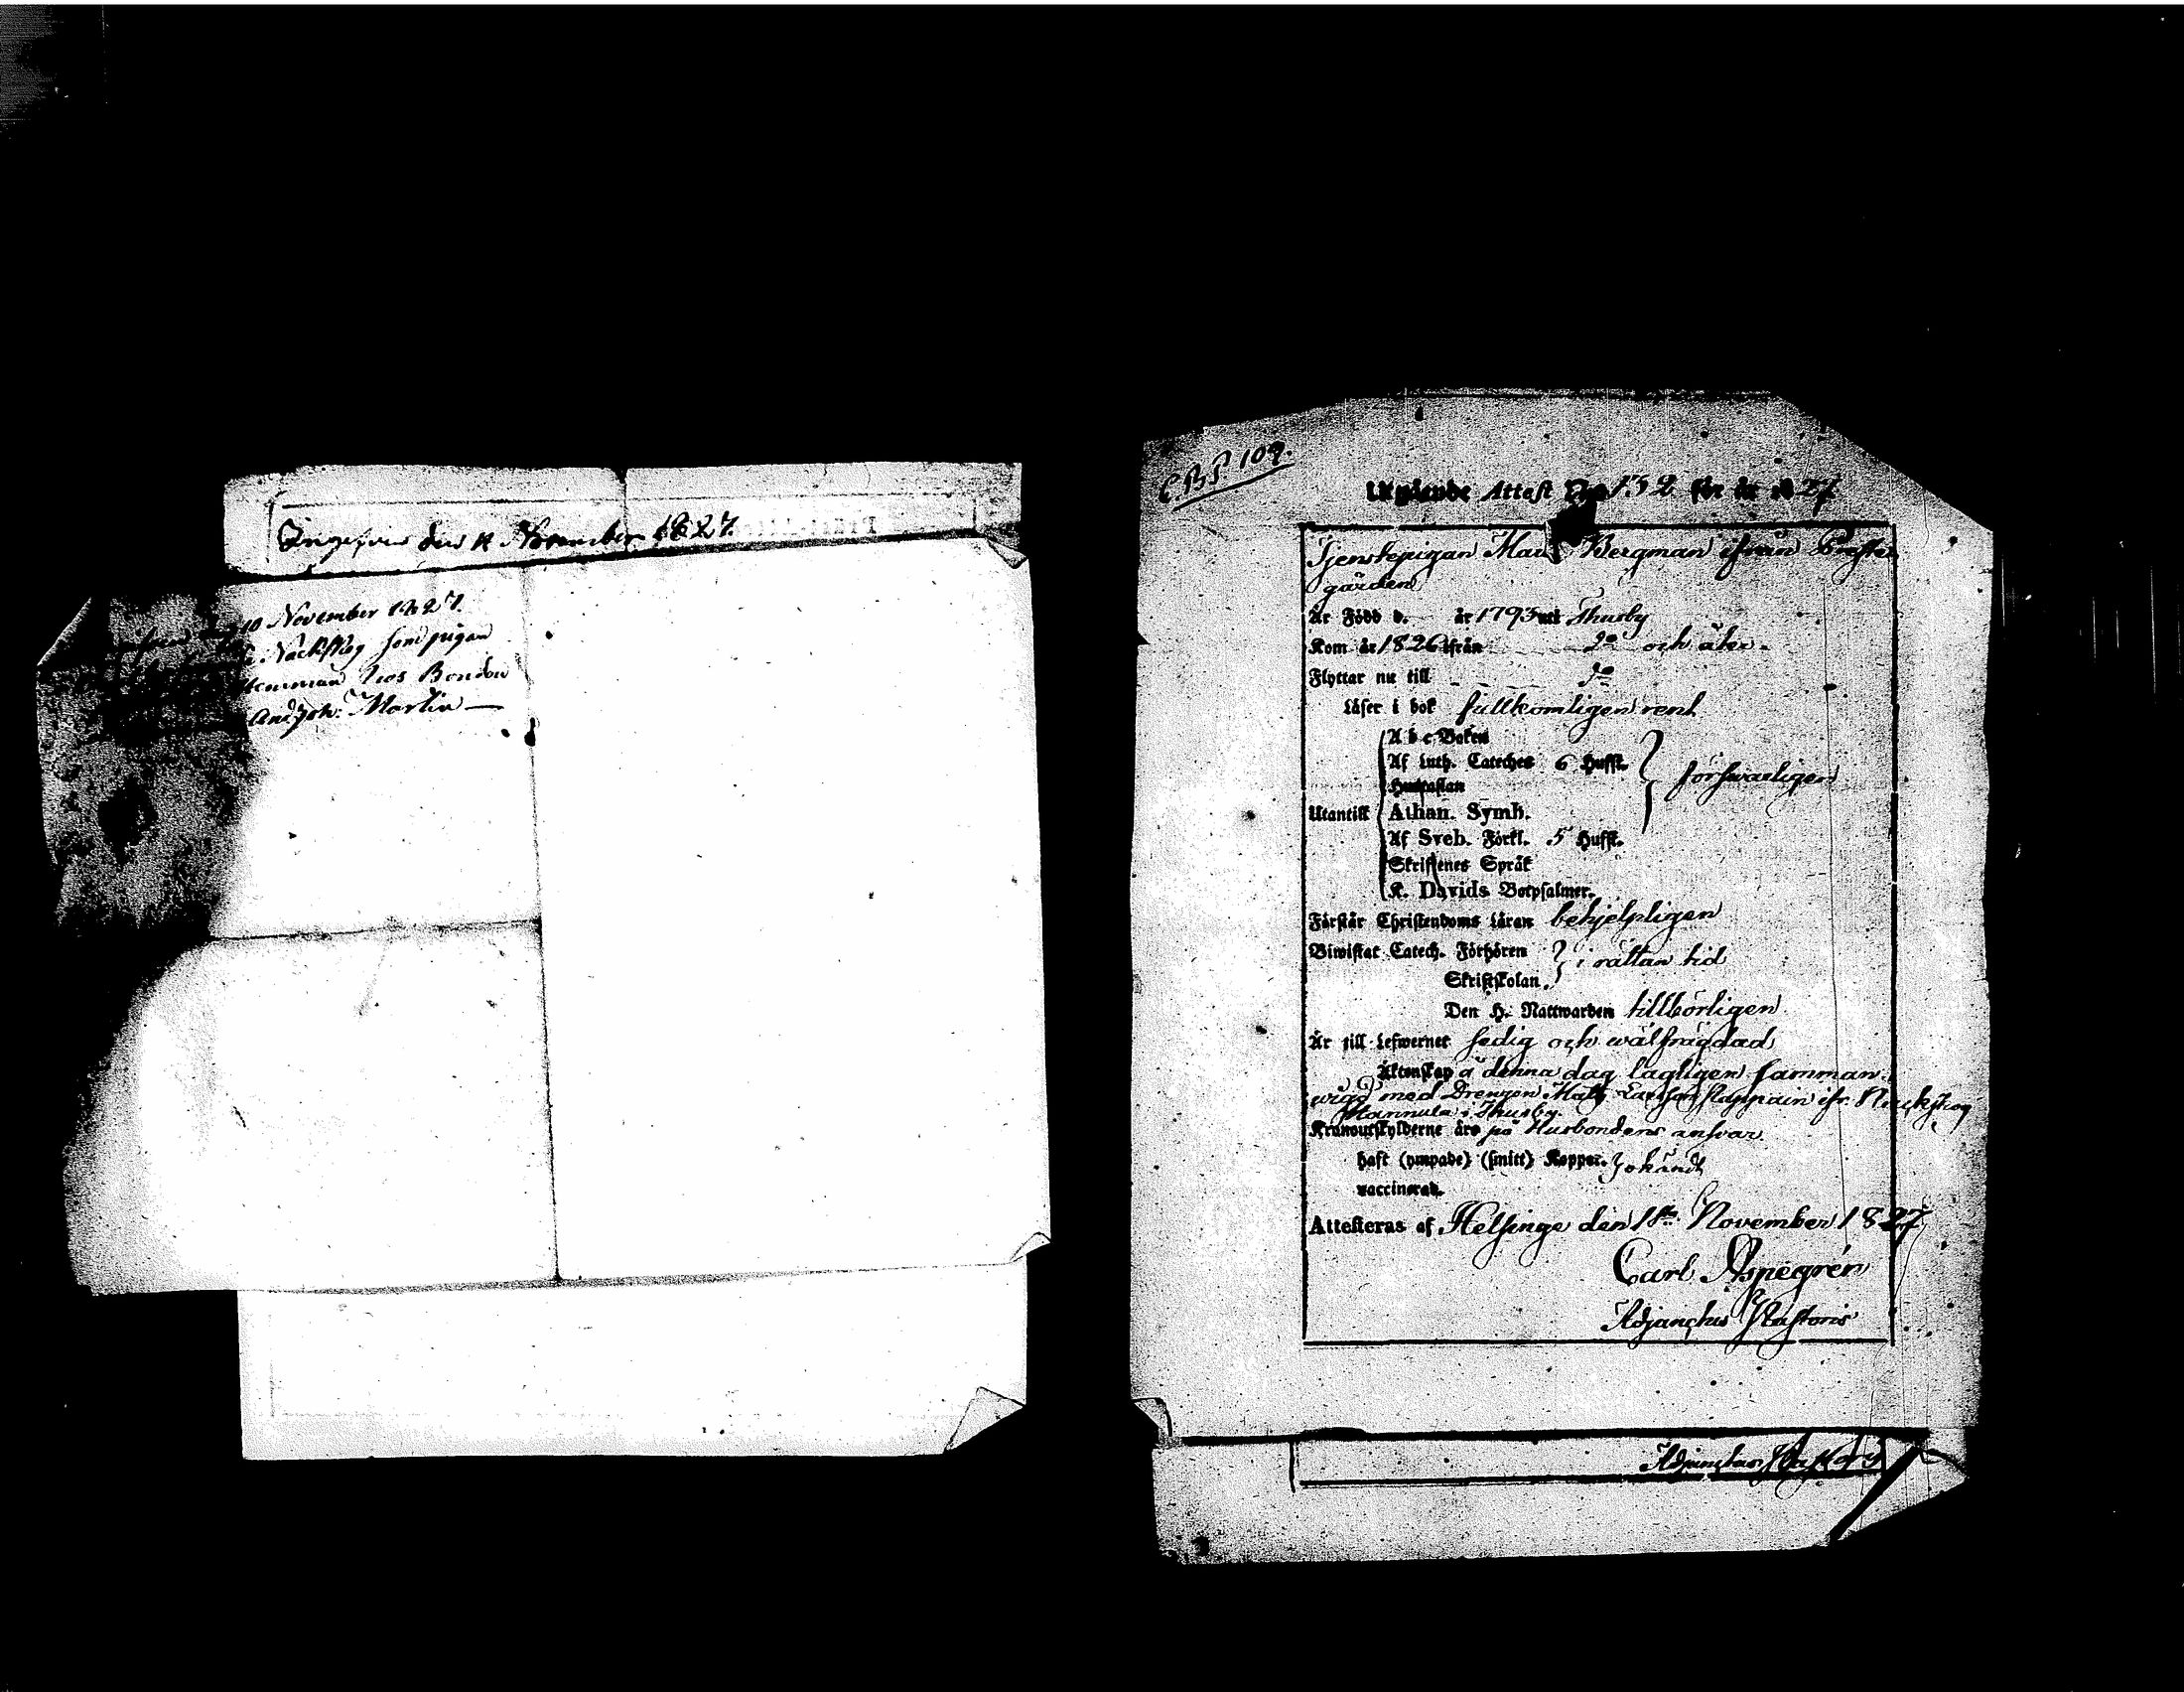 Ingifven den 12 November 1827.
10 November 1827.
Näckskog som pigan
hos Bonden
And Joh: Martin —
C.B.P. 109.
Utgående Attest N:o 132 för år 1827
Tjenstepigan Maria Bergman ifrån Prestegården
Är Född d. år 1793 uti Thusby
Kom år 1826 ifrån do och åter
Flyttar nu till do
Läser i bok fullkomligen rent
A b c Boken
Af Luth. Cateches 6 Hufst.
Hustaflan } försvarligen
Utantill Athan. Symb.
Af Sveb. Förkl. 5 Hufst.
Skriftenes Språk
K. Davids Botpsalmer.
Förstår Christendoms Läran behjelpligen
Biwistat Catech. Förhören } i rättan tid
Skriftskolan.
Den H. Nattwarden tillbörligen
Är till Lefwernet sedig och wälfrägdad
Äktenskap å denna dag lagligen samman-
wigd med Drengen Matts ifr. Näckskog
Hannula i Thusby.
Kronoutskylderne äro på Husbondens answar
haft (ympade) (smitt) Koppor. } okändt
vaccinerad.
Attesteras af Helsinge den 18de November 1827
Carl Aspegrén
Adjunctus Pastoris
Adjunctus Past